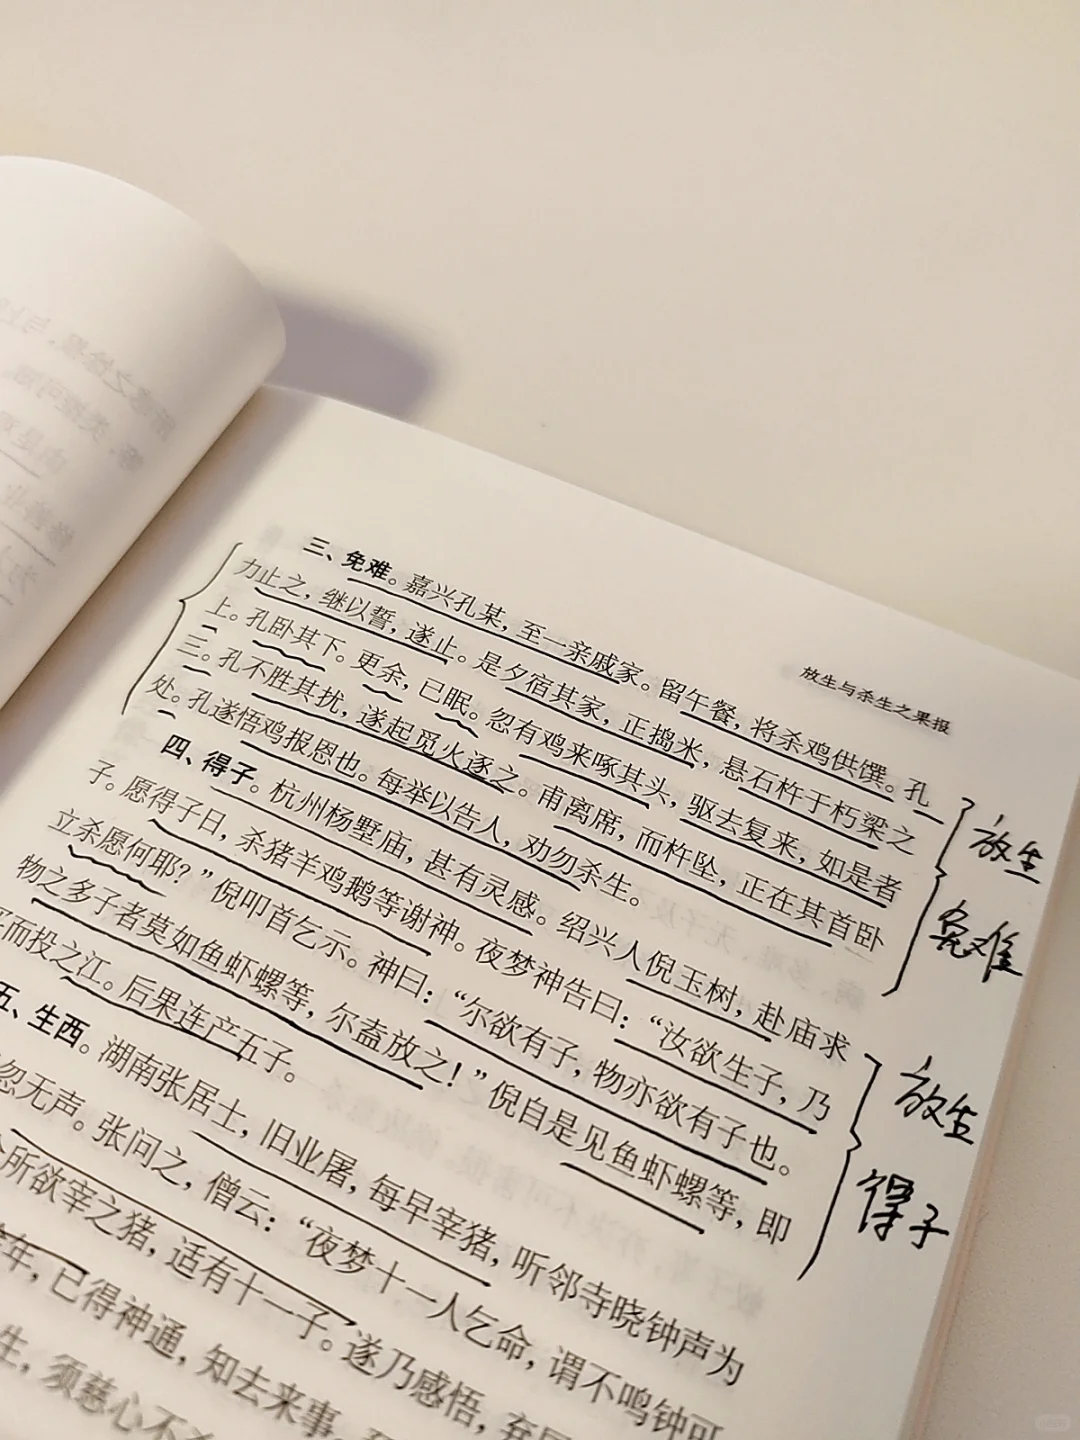 放生与杀生之果报
三、免难。嘉兴孔某，至一亲戚家。留午餐，将杀鸡供馔。孔
力止之，继以誓，遂止。是夕宿其家，正捣米，悬石杵于朽梁之
上。孔卧其下。更余，已眠。忽有鸡来啄其头，驱去复来，如是者
三。孔不胜其扰，遂起觅火逐之。甫离席，而杵坠，正在其首卧
处。孔遂悟鸡报恩也。每举以告人，劝勿杀生。
放生
免难
四、得子。杭州杨墅庙，甚有灵感。绍兴人倪玉树，赴庙求
子。愿得子日，杀猪羊鸡鹅等谢神。夜梦神告曰：“汝欲生子，乃
立杀愿何耶？”倪叩首乞示。神曰：“尔欲有子，物亦欲有子也。
物之多子者莫如鱼虾螺等，尔盍放之！”倪自是见鱼虾螺等，即
买而投之江。后果连产五子。
放生
得子
五、生西。湖南张居士，旧业屠，每早宰猪，听邻寺晓钟声为
忽无声。张问之，僧云：“夜梦十一人乞命，谓不鸣钟可
所欲宰之猪，适有十一子。遂乃感悟，弃
年，已得神通，知去来事。
生，须慈心不